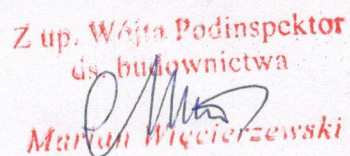 Z up. Wójta Podinspektor
ds. budownictwa
Marian Więcierzewski